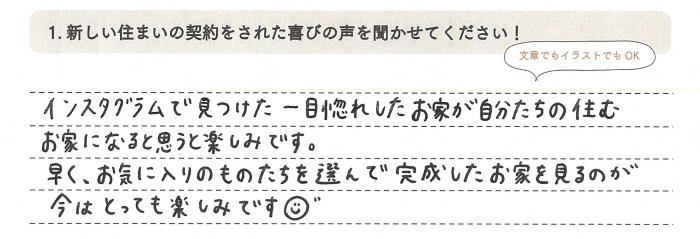 1. 新しい住まいの契約をされた喜びの声を聞かせてください！
文章でもイラストでも OK
インスタグラムで見つけた 一目惚れしたお家が自分たちの住む
お家になると思うと楽しみです。
早く、お気に入りのものたちを選んで完成したお家を見るのが
今はとっても楽しみです☺